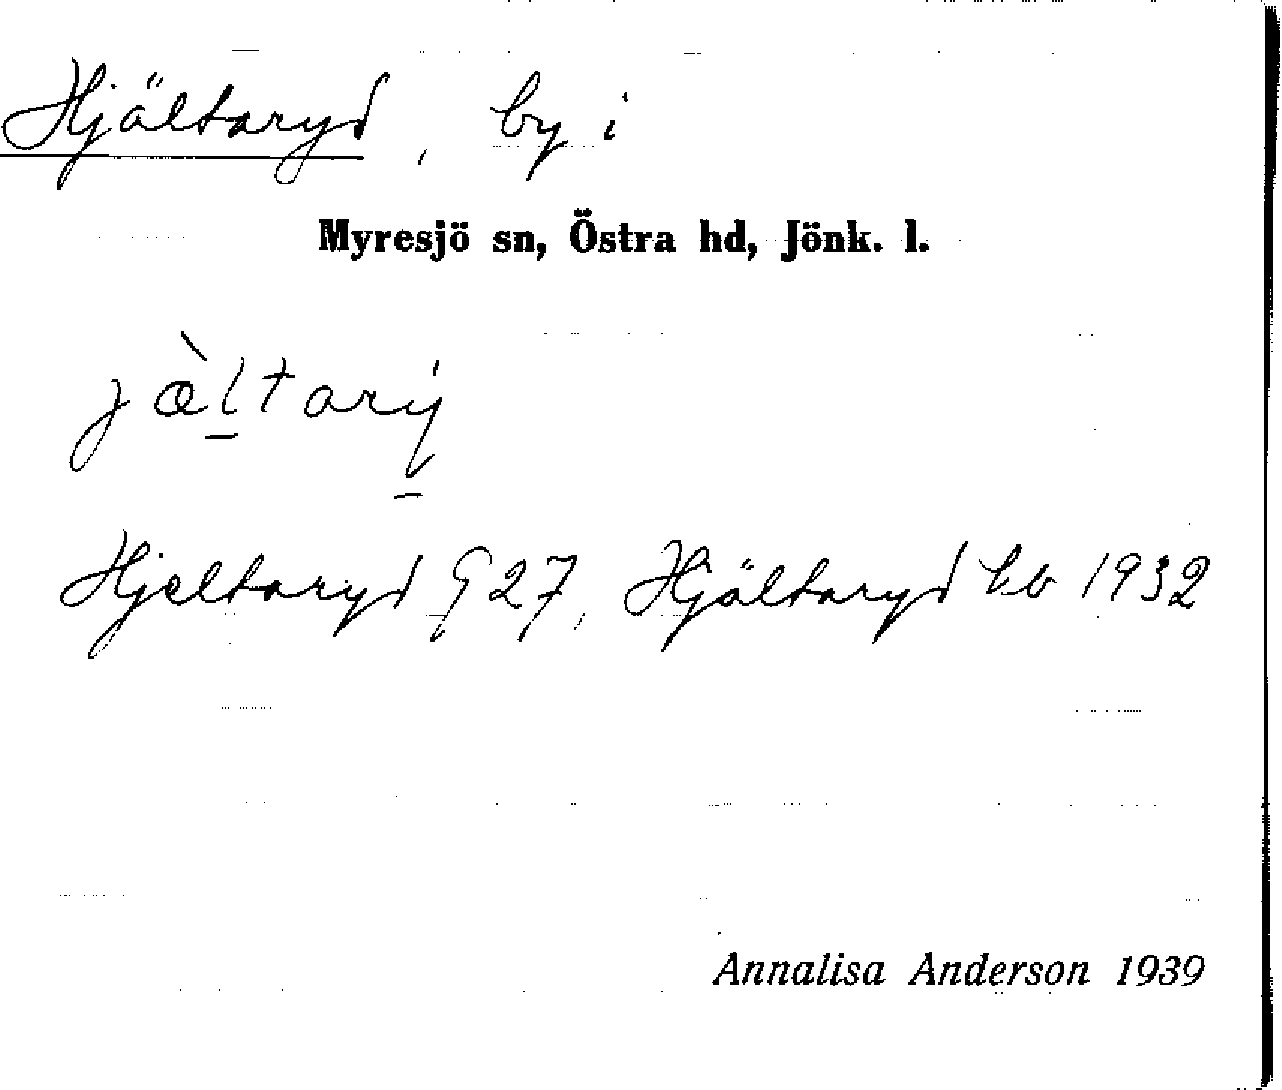 Hjältaryd, by i
Myresjö sn, Östra hd, Jönk. l.
jæ̀ltarý
Hjeltaryd G 27, Hjältaryd bb 1932
Annalisa Anderson 1939